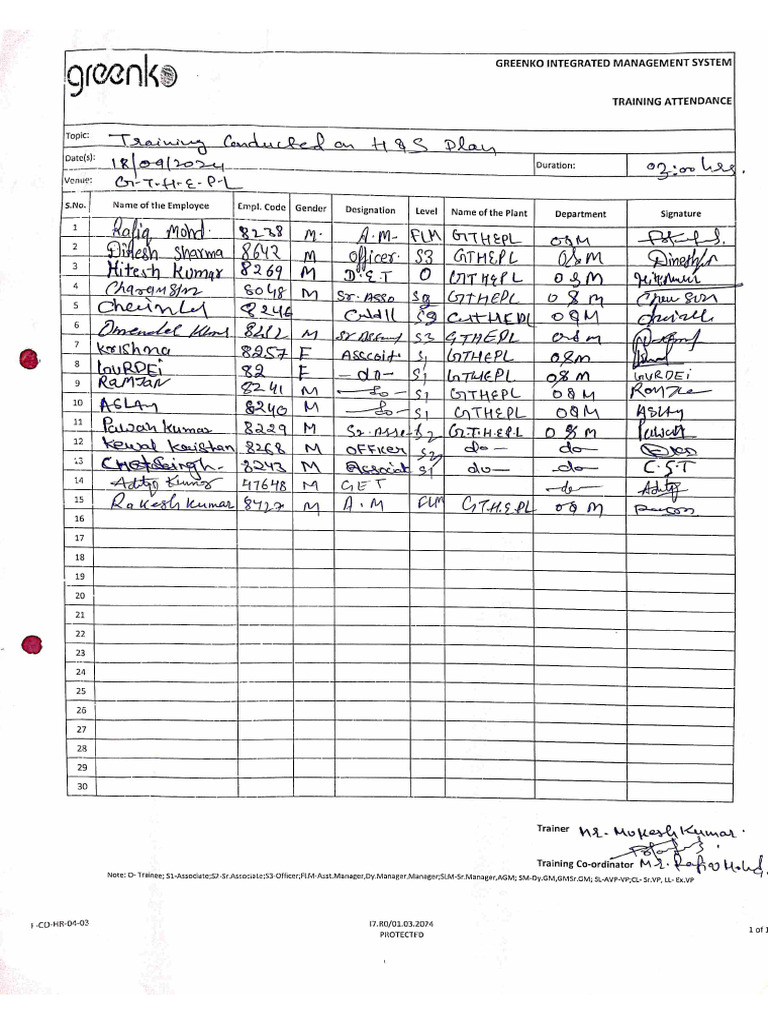 greenko
GREENKO INTEGRATED MANAGEMENT SYSTEM
TRAINING ATTENDANCE
Topic: Training Conducted on H&S Plan
Date(s): 18/09/2024 Duration: 03:00 hrs.
Venue: G-T-H-E-P-L
S.No. Name of the Employee Empl. Code Gender Designation Level Name of the Plant Department Signature
1 Rafiq Mohd. 8238 M. A.M- FLM GTHEPL O&M
2 Dinesh Sharma 8642 M officer. S3 GTHEPL O&M Dinesh
3 Hitesh Kumar 8269 M D.E.T O GTHEPL O&M
4 8048 M Sr. Asso GTHEPL O&M
5 8246 GTHEPL O&M
6 M S3 GTHEPL O&M
7 Krishna 8257 F S1 GTHEPL O&M
8 GURDEI 82 F -do- S1 GTHEPL O&M GURDEi
9 RAMJAN 8241 M S1 GTHEPL O&M
10 8240 M S1 GTHEPL O&M
11 Pawan Kumar 8229 M S2 G.T.H.E.P.L O&M Pawan
12 Kewal Krishan 8268 M OFFicer do- do-
13 8243 M Associat S1 do- do- C.S.T
14 Aditya Kumar 47648 M GET do-
15 Rakesh Kumar 8427 M A.M FLM GT.H.E.PL O&M
16
17
18
19
20
21
22
23
24
25
26
27
28
29
30
Trainer Mr. Mukesh Kumar.
Training Co-ordinator Mr. Rafiq Mohd.
Note: O- Trainee; S1-Associate;S2-Sr.Associate;S3-Officer;FLM-Asst.Manager,Dy.Manager,Manager;SLM-Sr.Manager,AGM; SM-Dy.GM,GMSr.GM; SL-AVP-VP;CL- Sr.VP, LL- Ex.VP
F-CD-HR-04-03 I7.R0/01.03.2024 1 of 1
PROTECTED